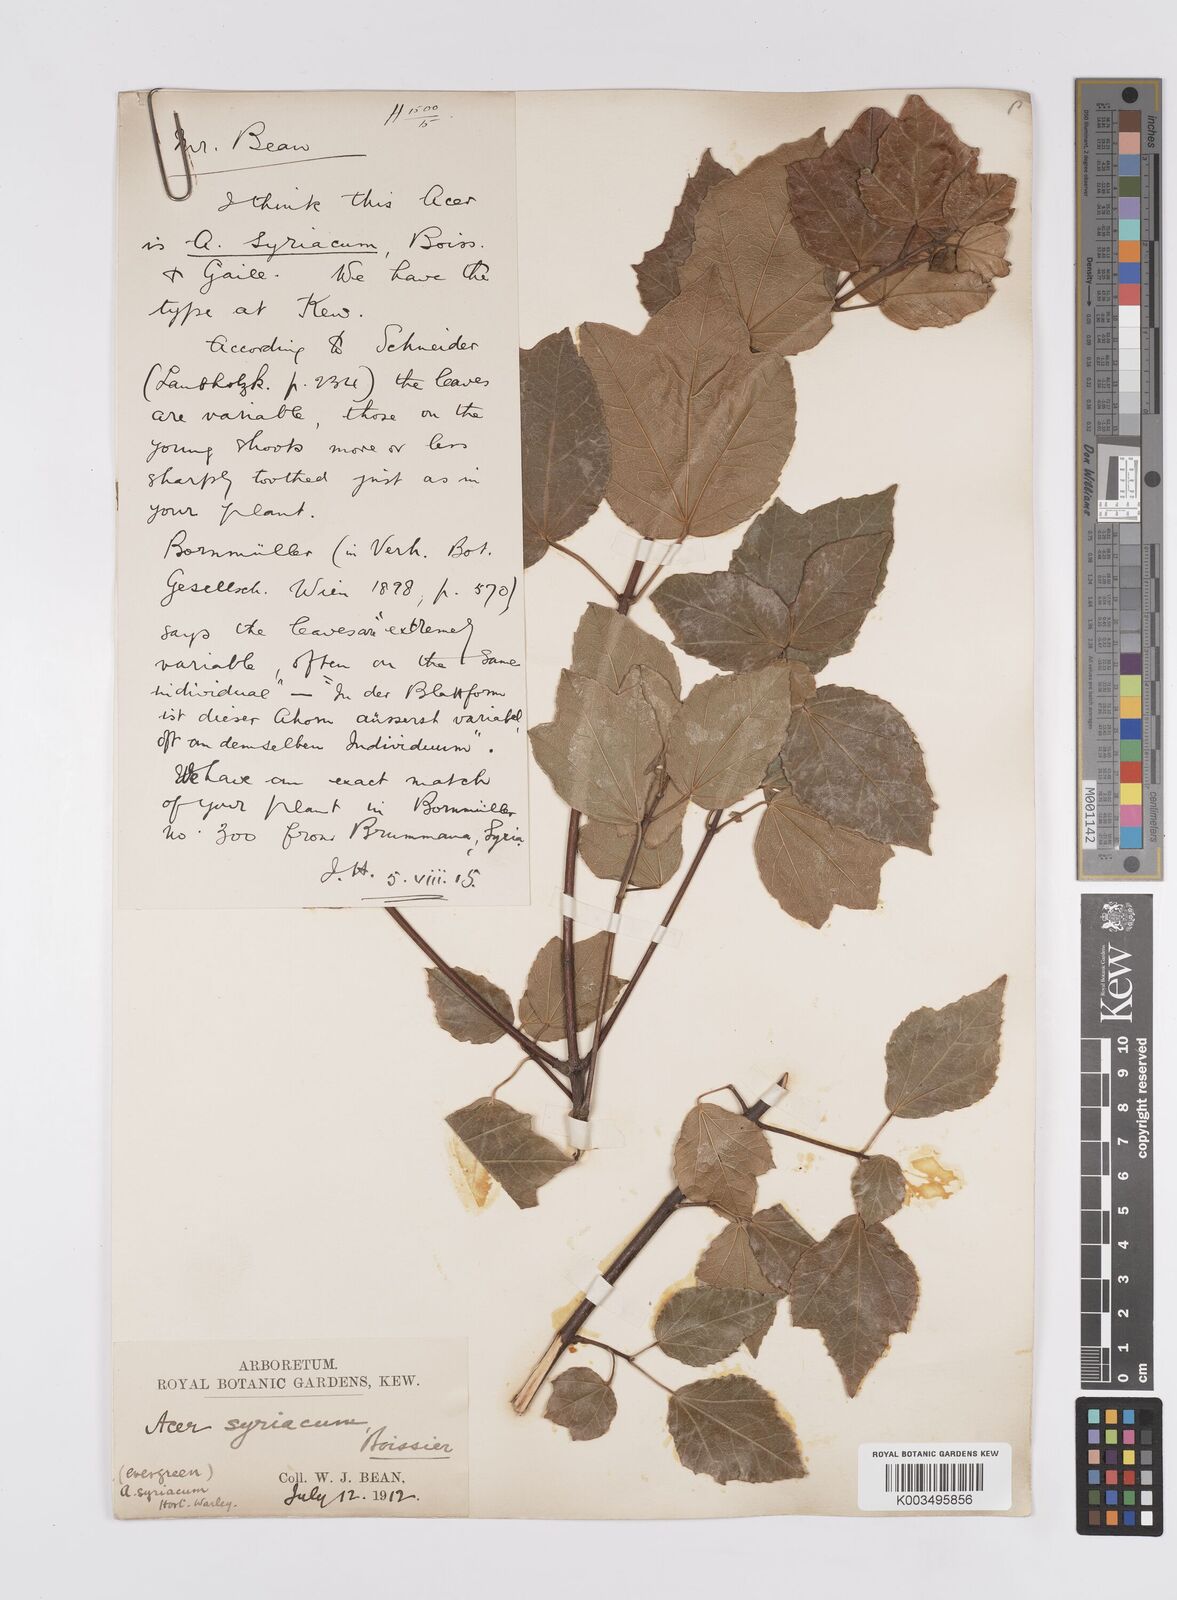 H 1500/15.
Mr. Bean
I think this Acer
is A. Syriacum, Boiss.
& Gaill. We have the
type at Kew.
According to Schneider
(Laubholzk. p. 234) the leaves
are variable, those on the
young shoots more or less
sharply toothed just as in
your plant.
Bornmüller (in Verh. Bot.
Gesellsch. Wien 1898, p. 570)
says the leaves are "extremely
variable, often on the same
individual" — "In der Blattform
ist dieser Ahorn äusserst variabel,
oft an demselben Individuum".
We have an exact match
of your plant in Bornmüller
no. 300 from Brummana, Syria.
J.H. 5.viii.15.
ARBORETUM.
ROYAL BOTANIC GARDENS, KEW.
Acer syriacum,
Boissier
(evergreen)
A. syriacum
Hort. Warley.
Coll. W. J. BEAN.
July 12. 1912.
ROYAL BOTANIC GARDENS KEW
K003495856
inches
centimetres
Density
Don Williams
M001142
Royal Botanic Gardens
Kew
0 1 2 3 4 5 6 7 8 9 10
cm
copyright reserved